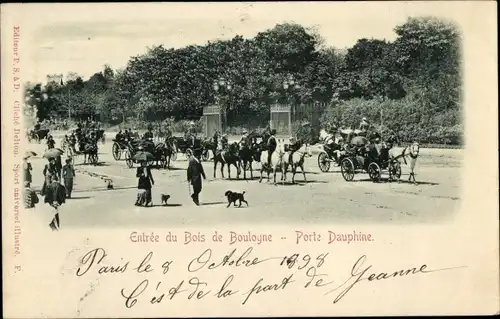 Entrée du Bois de Boulogne - Porte Dauphine.
Paris le 8 Octobre 1898
C'est de la part de Jeanne
Editeur P. S. à D. Cliché Delton. Sport universel illustré. F.